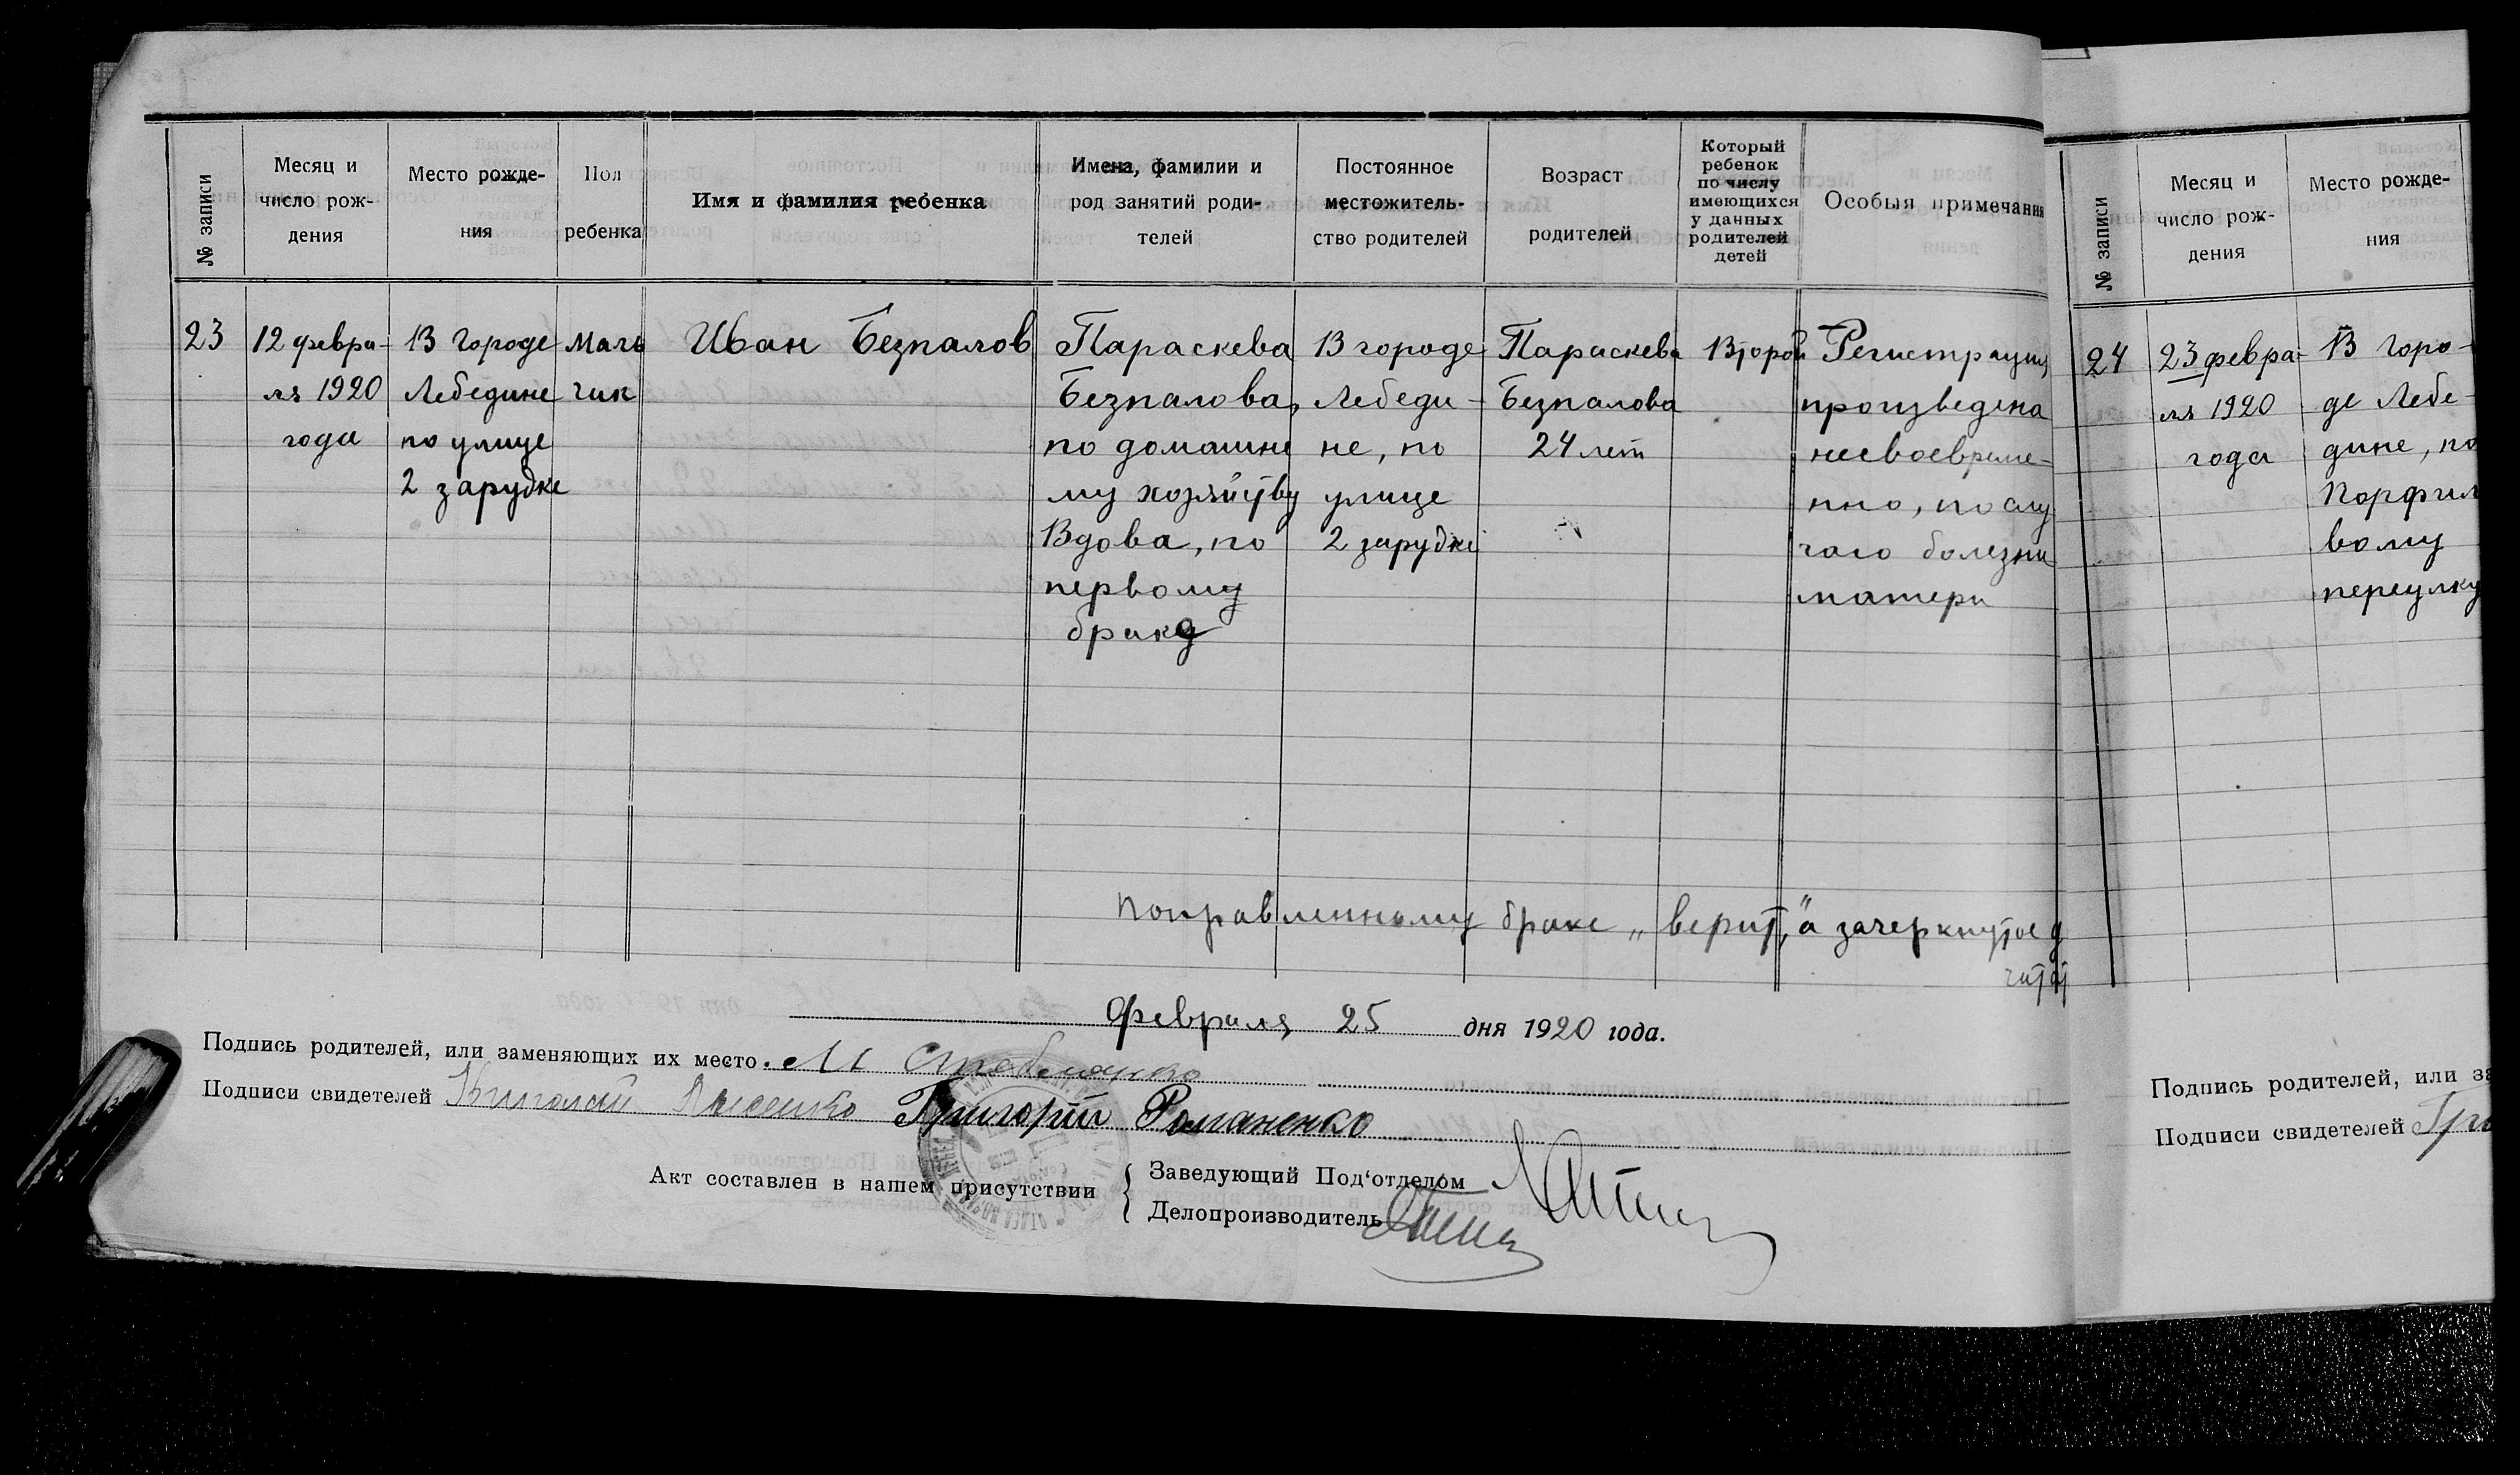 № записи
Месяц и
число рож-
дения
Место рожде-
ния
Пол
ребенка
Имя и фамилия ребенка
Имена, фамилии и
род занятий роди-
телей
Постоянное
местожитель-
ство родителей
Возраст
родителей
Который
ребенок
по числу
имеющихся
у данных
родителей
детей
Особыя примечания
23
12 февра-
ля 1920
года
В городе
Лебедине
по улице
2 зарудке
маль
чик
Иван Безпалов
Параскева
Безпалова,
по домашне
му хозяйству
Вдова, по
первому
браку
В городе
Лебеди-
не, по
улице
2 зарудке
Параскева
Безпалова
24 лет
Второй
Регистрация
произведена
несвоевреме-
нно, по слу
чаю болезни
матери
Поправленному браке „верит," а зачеркнутое
Февраля 25 дня 1920 года.
Подпись родителей, или заменяющих их место. М
Подписи свидетелей Николай Григорій Романенко
Акт составлен в нашем присутствии
Заведующий Под'отделом
Делопроизводитель
№ записи
Месяц и
число рож-
дения
Место рожде-
ния
24
23 февра-
ля 1920
года
В горо-
де Лебе-
дине, по
Порфил
вому
переулку
Подпись родителей, или за
Подписи свидетелей Гри